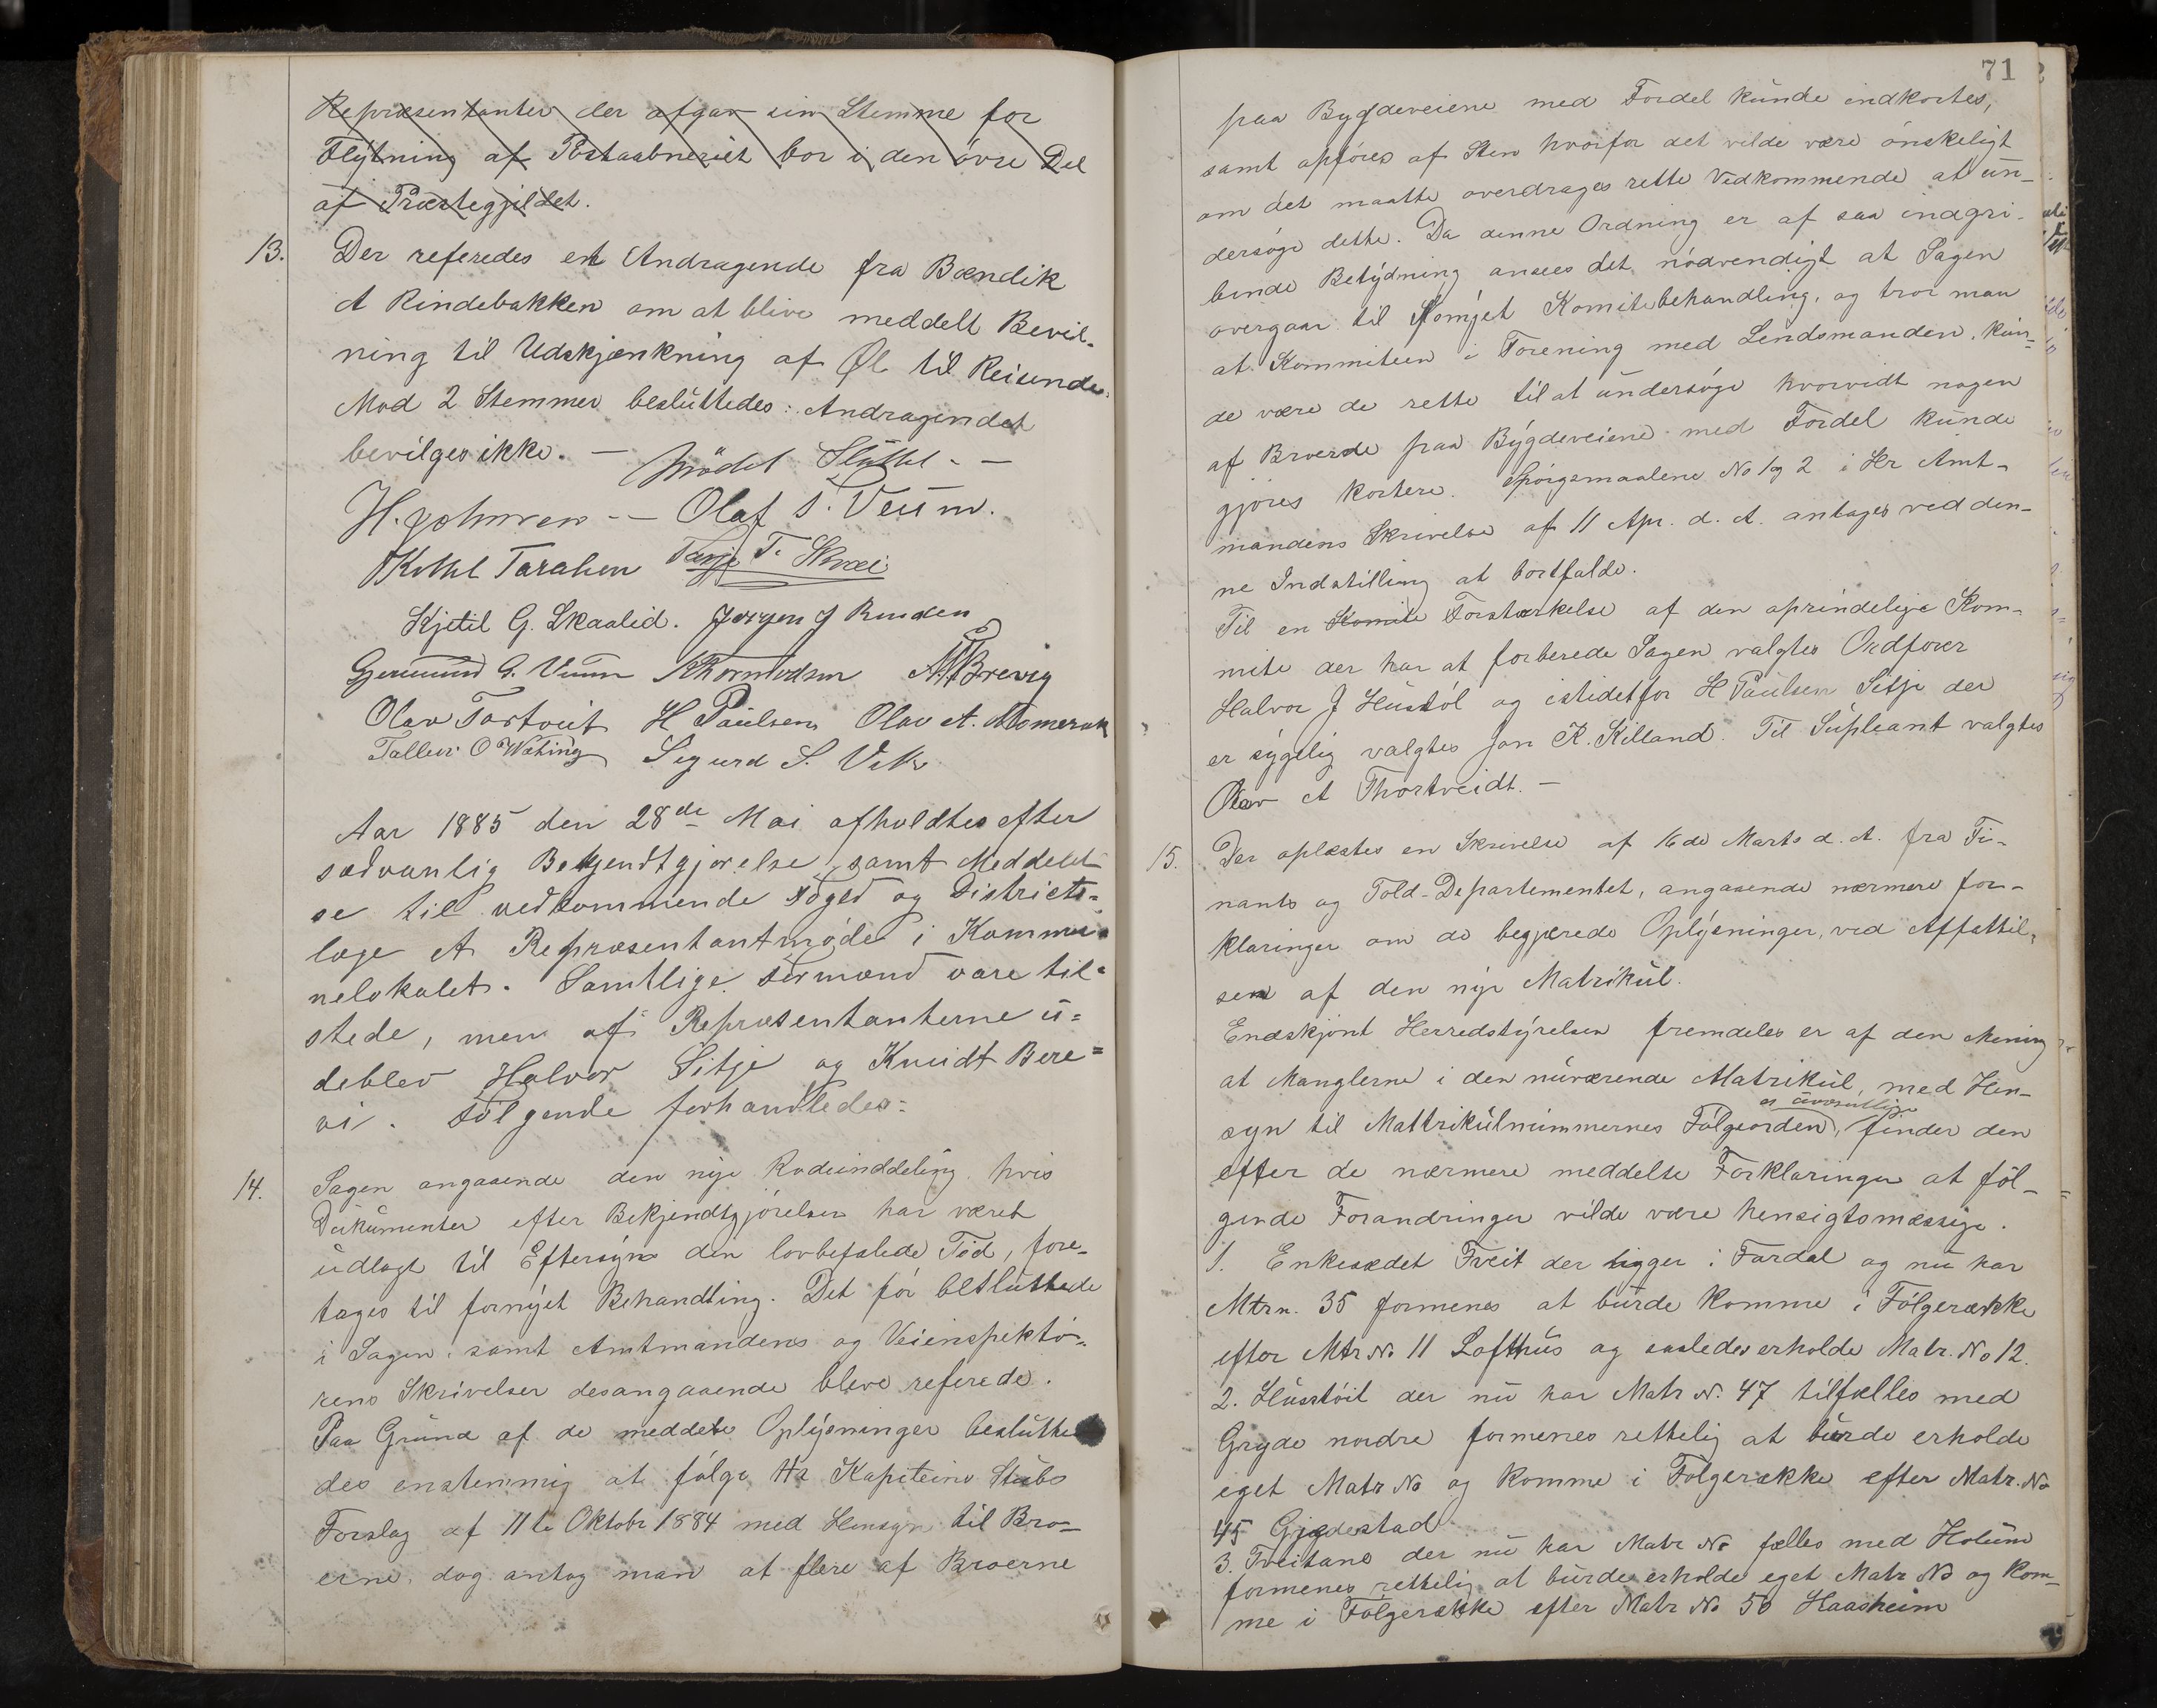 Repræsentanter der afgav sin Stemme for
Flÿtning af Postaabneriet bor i den øvre Del
af Præstegjildet.
13. Der referedes et Andragende fra Bendik
A Rindebakken om at blive meddelt Bevil-
ning til Udskjænkning af Øl til Reisende.
Mod 2 Stemmer besluttedes: Andragendet
bevilges ikke. — Mödet Sluttet. —
H. Johnsen — Olaf S. Veum.
Kittil Taraldsen Tarje T. Skrei
Kjetil G. Skaalid. Jørgen J Runden
Gjermund G. Veum K Thormodsen Brevig
Olav Tortveit H Paulsen Olav A. Momerak
Tallev O Wating Sigurd S. Vik
Aar 1885 den 28de Mai afholdtes efter
sædvanlig Bekjendtgjørelse, samt Meddelel-
se til vedkommende Foged og Districts-
læge et Repræsentantmøde i Kommu-
nelokalet. Samtlige Formænd vare til-
stede, men af Repræsentanterne u-
deblev Halvor Sitje og Knudt Bere-
vi. Følgende forhandledes:
14. Sagen angaaende den nye Rodeinddeling, hvis
Dokumenter efter Bekjendtgjörelsen har været
udlagt til Eftersyn den lovbefalede Tid, fore-
tages til fornyet Behandling. Det för besluttede
i Sagen, samt Amtmandens og Veiinspektö-
rens Skrivelser desangaaende bleve referede.
Paa Grund af de meddelte Oplysninger beslutte-
des enstemmig at fölge Hr Kapteine Stubs
Forslag af 11te Oktobr 1884 med Hensyn til Bro-
erne, dog antog man at flere af Broerne
71
paa Bygdeveiene med Fordel kunde indkortes,
samt opföres af Sten hvorfor det vilde være önskeligt
om det maatte overdrages rette Vedkommende at un-
dersöge dette. Da denne Ordning er af saa indgri-
bende Betydning ansees det nödvendigt at Sagen
overgaar til fornyet Komitebehandling, og tror man
at Kommiteen i Forening med Lendsmanden, kun-
de være de rette til at undersöge hvorvidt nogen
af Broerne paa Bygdeveiene med Fordel kunde
gjöres kortere. Spörgsmaalene No 1 og 2 i Hr Amt-
mandens Skrivelse af 11 Apr. d. A. antages ved den-
ne Indstilling at bortfalde.
Til en Komite Forstærkelse af den oprindelige Kom-
mite der har at forberede Sagen valgtes Ordfører
Halvor J Hustöl og istedetfor H Paulsen Sitje der
er sygelig valgtes Jon K. Killand. Til Supleant valgtes
Olav A Thortveidt. —
15. Der oplæstes en Skrivelse af 16de Marts d. A. fra Fi-
nants og Told-Departementet, angaaende nærmere for-
klaringer om de begjærede Oplysninger, ved Affattel-
sen af den nye Matrikul.
Endskjönt Herredstyrelsen fremdeles er af den Mening
at Manglerne i den nuværende Matrikul, med Hen-
er uvæsentlige
syn til Mattrikulnummernes Fölgeorden, finder den
efter de nærmere meddelte Forklaringer at föl-
gende Forandringer vilde være hensigtsmæssige.
1. Enkesædet Tveit der ligger i Fardal og nu har
Mtrn. 35 formenes at burde komme i Fölgerække
efter Mtr No 11 Lofthus og saaledes erholde Matr. No 12.
2. Husstöil der nu har Matr No. 47 tilfælles med
Gryde nordre formenes rettelig at burde erholde
eget Matr No og komme i Fölgerække efter Matr. No
45 Gjedestad
3. Tveitane der nu har Matr No fælles med Holum
formenes rettelig at burde erholde eget Matr No og kom-
me i Fölgerække efter Matr No 50 Haasheim